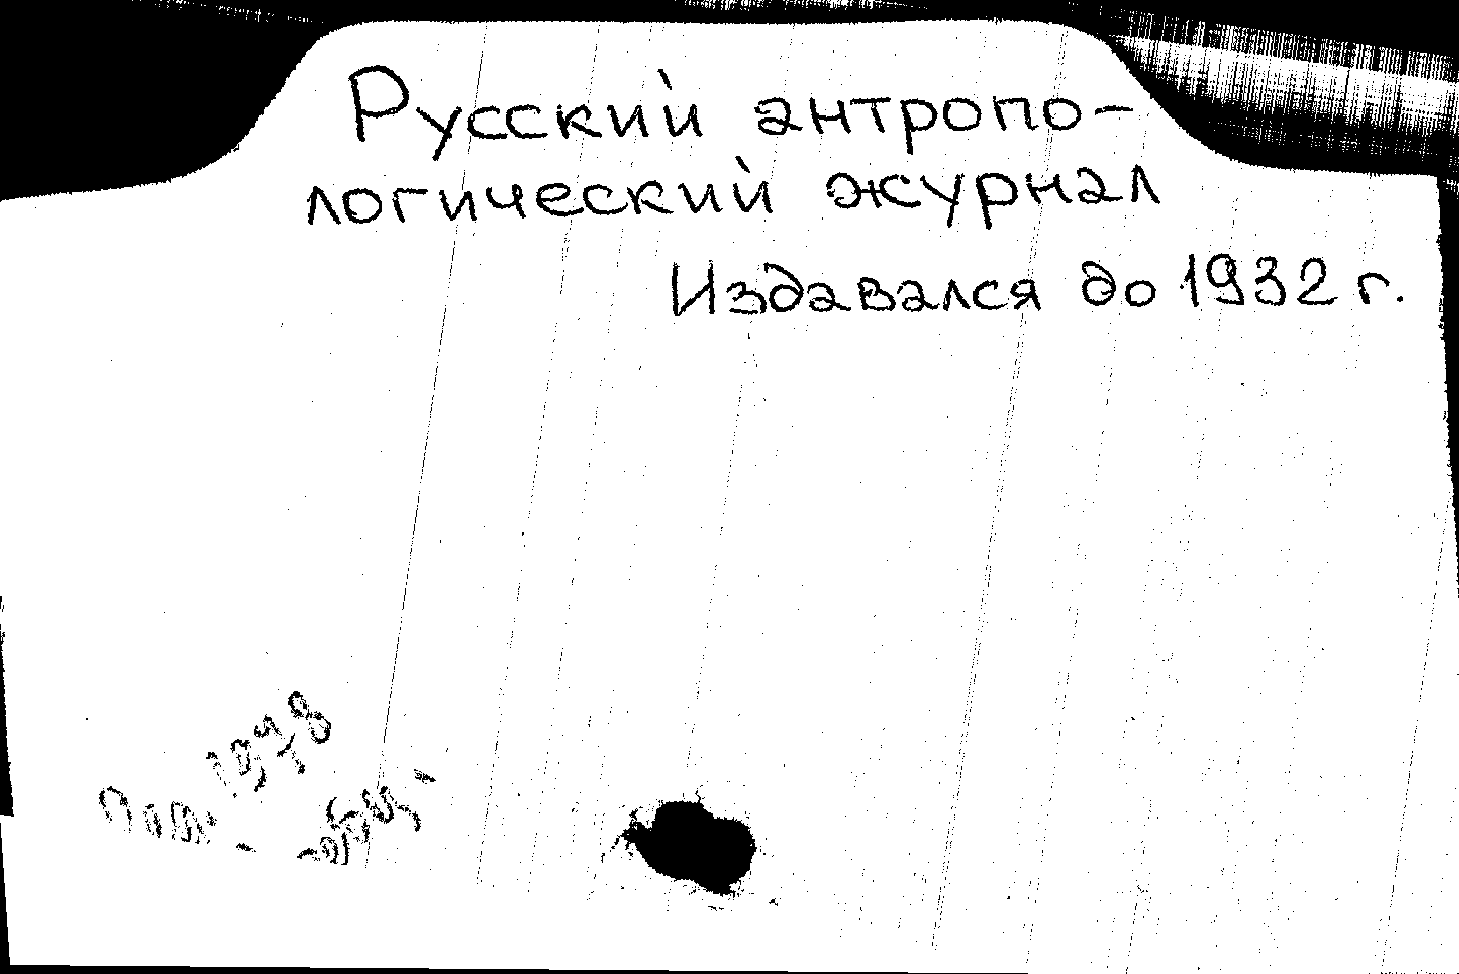 Русский антропо-
логический журнал
Издавался до 1932 г.
1978